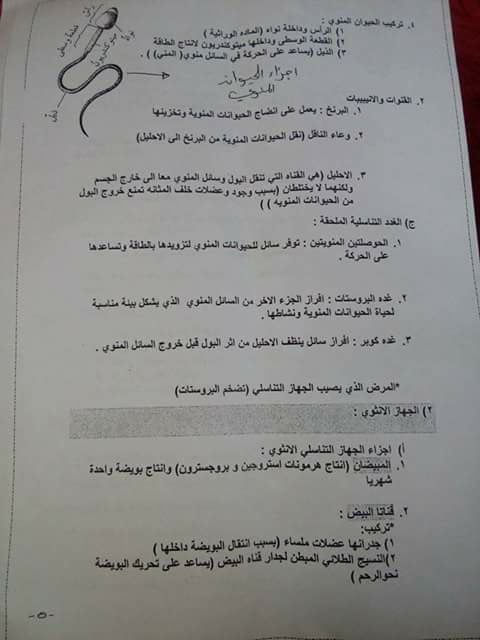 ٤. تركيب الحيوان المنوي :
١) الرأس وداخلة نواه (الماده الوراثية )
٢) القطعة الوسطى وداخلها ميتوكندريون لانتاج الطاقة
٣) الذيل (يساعد على الحركة في السائل منوي( المني) ) .
رأس
قطعة وسطى
ميتوكندريون
نواة
ذيل
اجزاء الحيوان
المنوي
٢. القنوات والانيبيبات
١. البرنخ : يعمل على انضاج الحيوانات المنوية وتخزينها
٢. وعاء الناقل (نقل الحيوانات المنوية من البرنخ الى الاحليل)
٣. الاحليل (هي القناه التي تنقل البول وسائل المنوي معا الى خارج الجسم
ولكنهما لا يختلطان (بسبب وجود وعضلات خلف المثانه تمنع خروج البول
من الحيوانات المنويه ) )
ج) الغدد التناسلية الملحقة :
١. الحوصلتين المنويتين : توفر سائل للحيوانات المنوي لتزويدها بالطاقة وتساعدها
على الحركة .
٢. غده البروستات : افراز الجزء الاخر من السائل المنوي الذي يشكل بيئة مناسبة
لحياة الحيوانات المنوية ونشاطها .
٣. غده كوبر : افراز سائل ينظف الاحليل من اثر البول قبل خروج السائل المنوي .
*المرض الذي يصيب الجهاز التناسلي (تضخم البروستات)
٢) الجهاز الانثوي :
أ) اجزاء الجهاز التناسلي الانثوي :
١. المبيضان (انتاج هرمونات استروجين و بروجسترون) وانتاج بويضة واحدة
شهريا
٢. قناتا البيض :
*تركيب:
١) جدرانها عضلات ملساء (بسبب انتقال البويضة داخلها )
٢)النسيج الطلائي المبطن لجدار قناه البيض (يساعد على تحريك البويضة
نحوالرحم )
-٥-